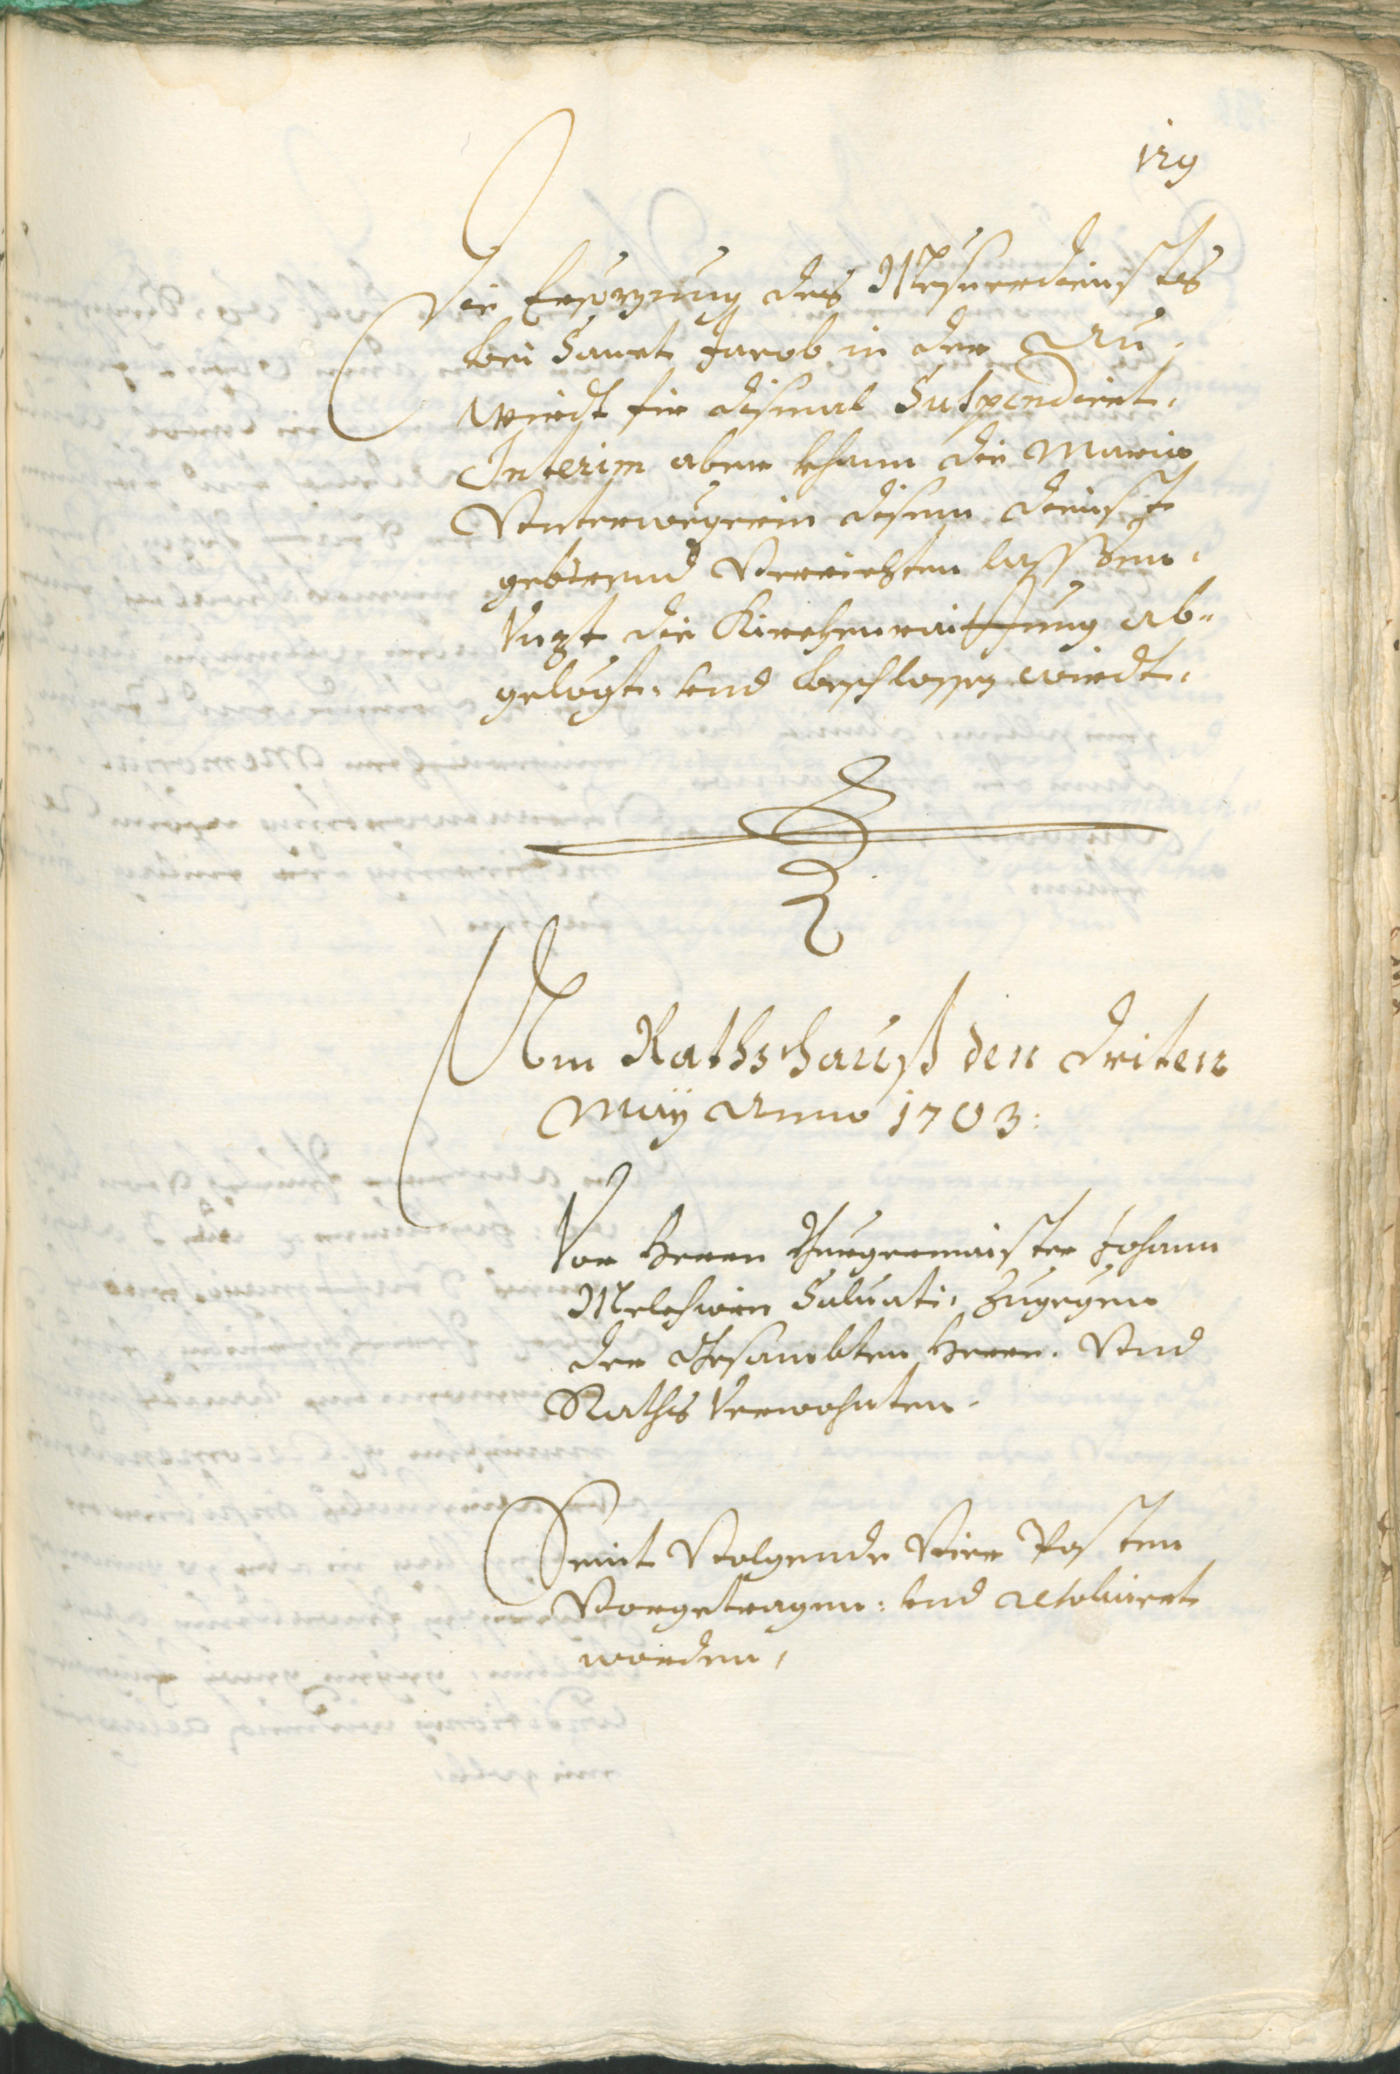 129
Die Ersözung des Mesnerdienstes
bei Sanct Jacob in der Au,
wirdt fir dismal Suspendiert,
Interim aber khann die Maria
Unterwegerin disem dienst
gebirend Verrichten lassen,
Vnzt die Kirchenraittung ab-
gelögt, vnd beschlossen wirdt,
Am Rathshauß den driten
Maÿ Anno 1703:
Vor Herrn Burgermaister Johann
Melchiorn Saluati, Zugegen
der Gesambten Herrn. Vnd
Raths Verwohnten.
Seint Volgende Vier Posten
Vorgetragen: vnd resolviert
worden,